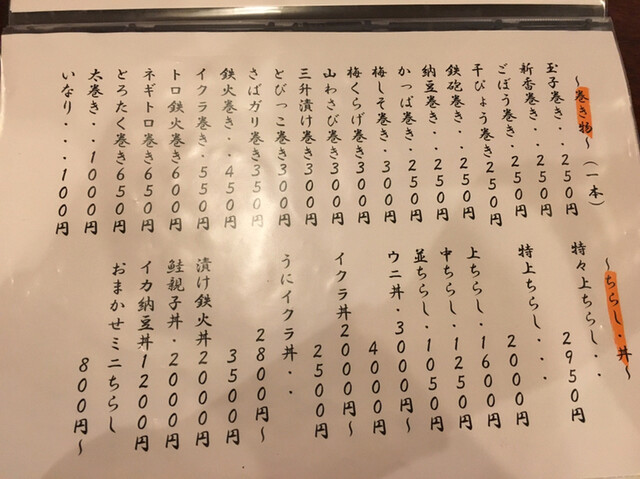 〜巻き物〜(一本)
玉子巻き・・250円
新香巻き・・250円
ごぼう巻き・250円
干ぴょう巻き250円
鉄砲巻き・・250円
納豆巻き・・250円
かっぱ巻き・250円
梅しそ巻き・300円
梅くらげ巻き300円
山わさび巻き300円
三升漬け巻き300円
とびっこ巻き300円
さばガリ巻き350円
鉄火巻き・・450円
イクラ巻き・550円
トロ鉄火巻き600円
ネギトロ巻き650円
とろたく巻き650円
太巻き・・1000円
いなり・・・100円
〜ちらし・丼〜
特々上ちらし・・
2950円
特上ちらし・・・
2000円
上ちらし・1600円
中ちらし・1250円
並ちらし・1050円
ウニ丼・3000円〜
4000円
イクラ丼2000円〜
2500円
うにイクラ丼・・
2800円〜
3500円
漬け鉄火丼2000円
鮭親子丼・2000円
イカ納豆丼1200円
おまかせミニちらし
800円〜